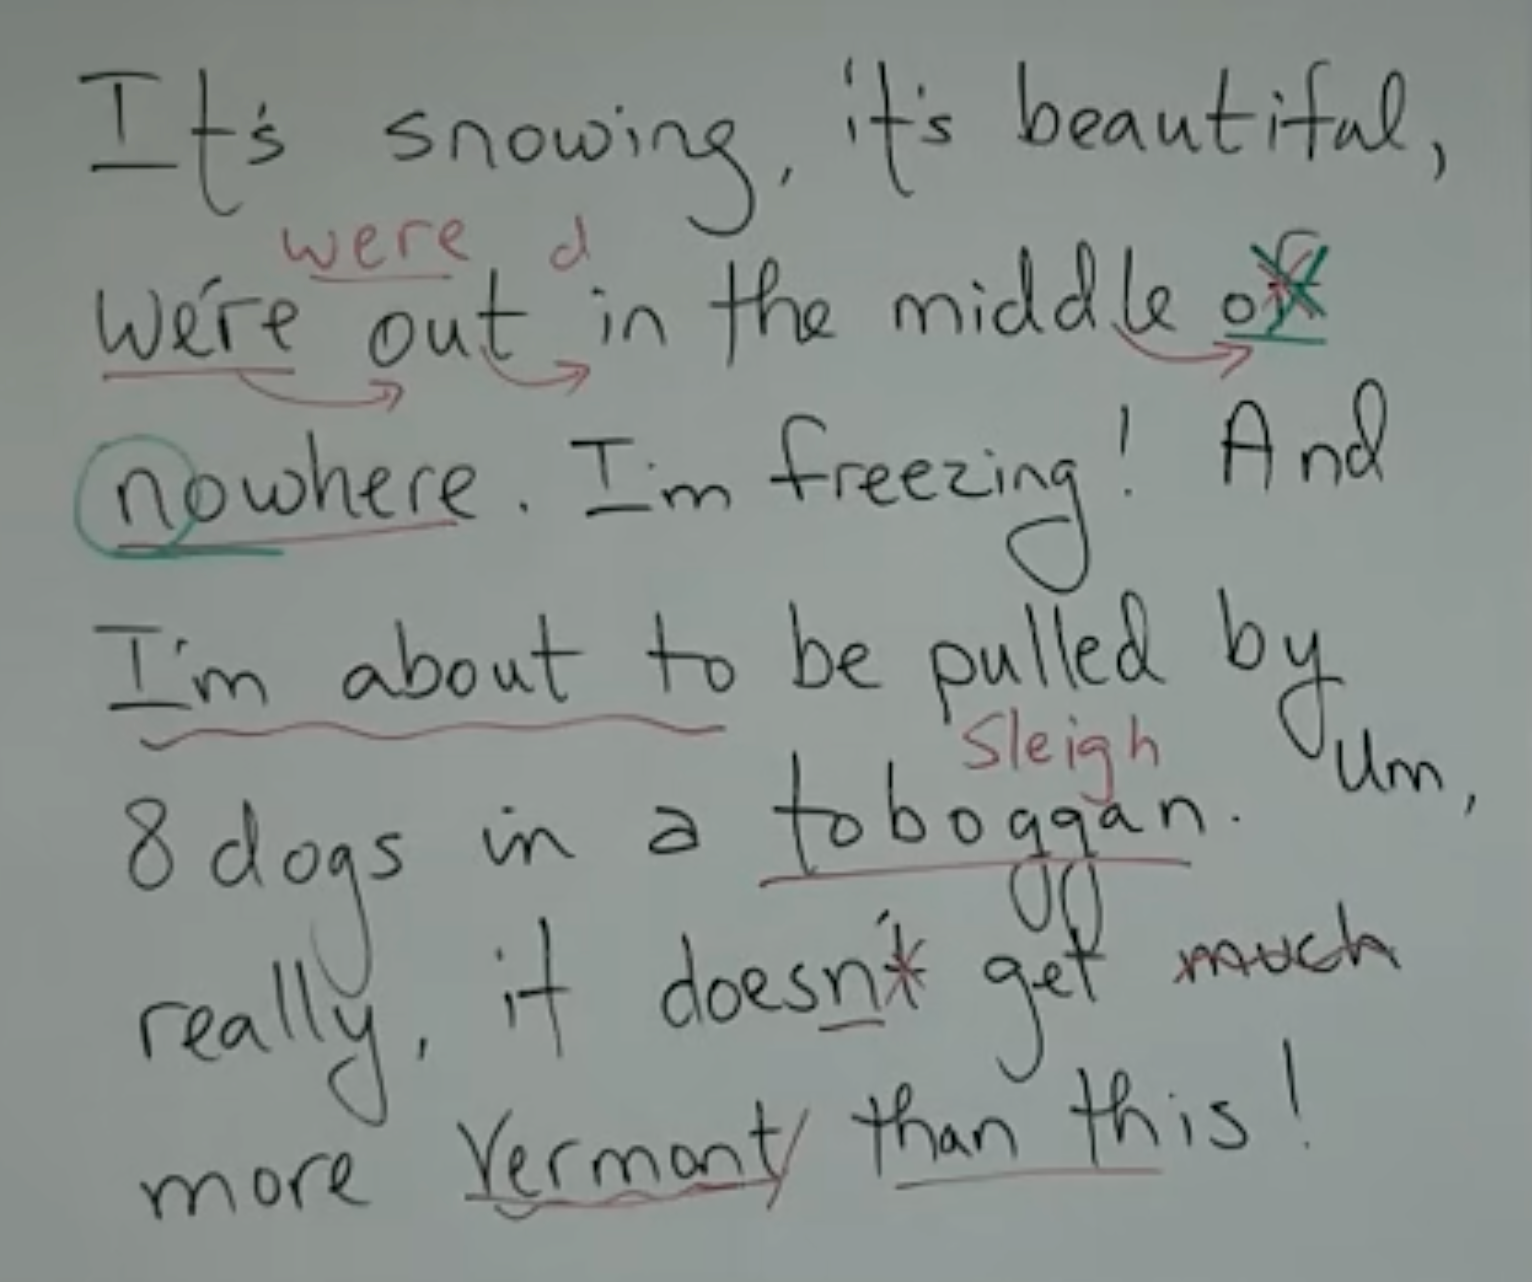 It's snowing, it's beautiful,
were d
We're out in the middle of
nowhere. I'm freezing! And
I'm about to be pulled by
sleigh
8 dogs in a toboggan. Um,
really, it doesn't get much
more Vermont than this!